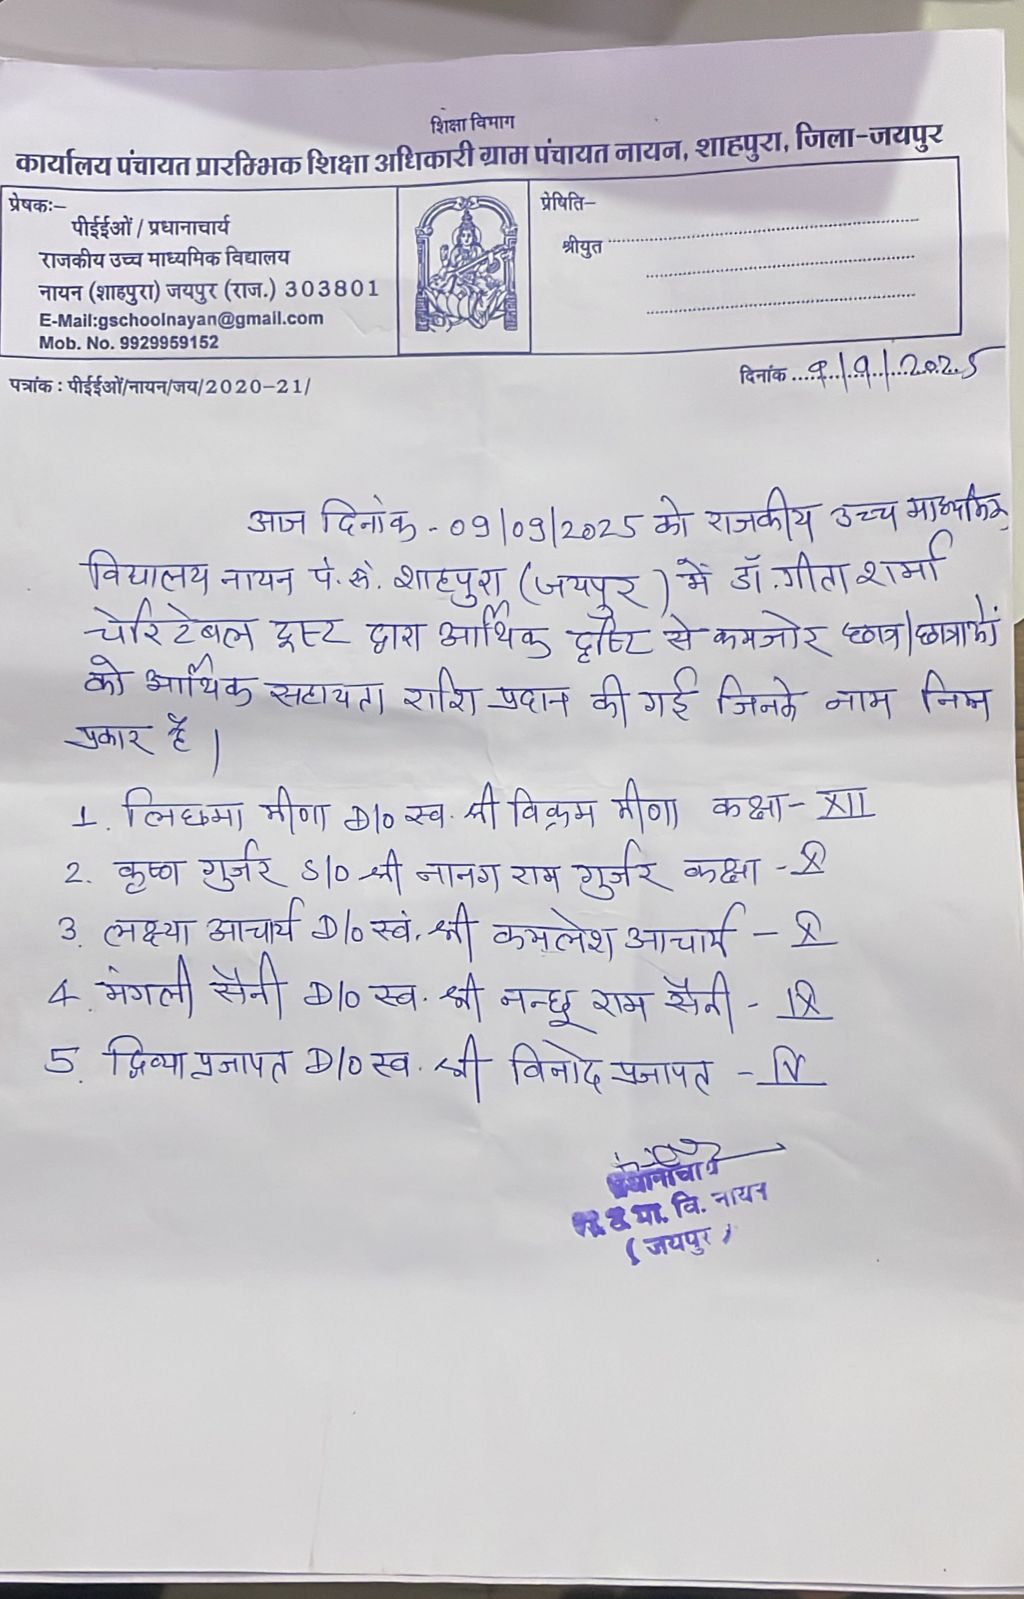 शिक्षा विभाग
कार्यालय पंचायत प्रारम्भिक शिक्षा अधिकारी ग्राम पंचायत नायन, शाहपुरा, जिला-जयपुर
प्रेषकः-
पीईईओं / प्रधानाचार्य
राजकीय उच्च माध्यमिक विद्यालय
नायन (शाहपुरा) जयपुर (राज.) 303801
E-Mail:gschoolnayan@gmail.com
Mob. No. 9929959152
प्रेषिति-
श्रीयुत
पत्रांक : पीईईओं/नायन/जय/2020-21/
दिनांक 9/9/2025
आज दिनांक - 09/09/2025 को राजकीय उच्च माध्यमिक
विद्यालय नायन पं. स. शाहपुरा (जयपुर) में डॉ. गीता शर्मा
चेरिटेबल ट्रस्ट द्वारा आर्थिक दृष्टि से कमजोर छात्र/छात्राओं
को आर्थिक सहायता राशि प्रदान की गई जिनके नाम निम्न
प्रकार है |
1. लिछमा मीणा D/o स्व. श्री विक्रम मीणा कक्षा - XII
2. कृष्ण गुर्जर S/o श्री नानग राम गुर्जर कक्षा - X
3. लक्ष्या आचार्य D/o स्वं. श्री कमलेश आचार्य - X
4. मंगली सैनी D/o स्व. श्री नन्छू राम सैनी - IX
5. दिव्या प्रजापत D/o स्व. श्री विनोद प्रजापत - IV
प्रधानाचार्य
रा. उ. मा. वि. नायन
(जयपुर)